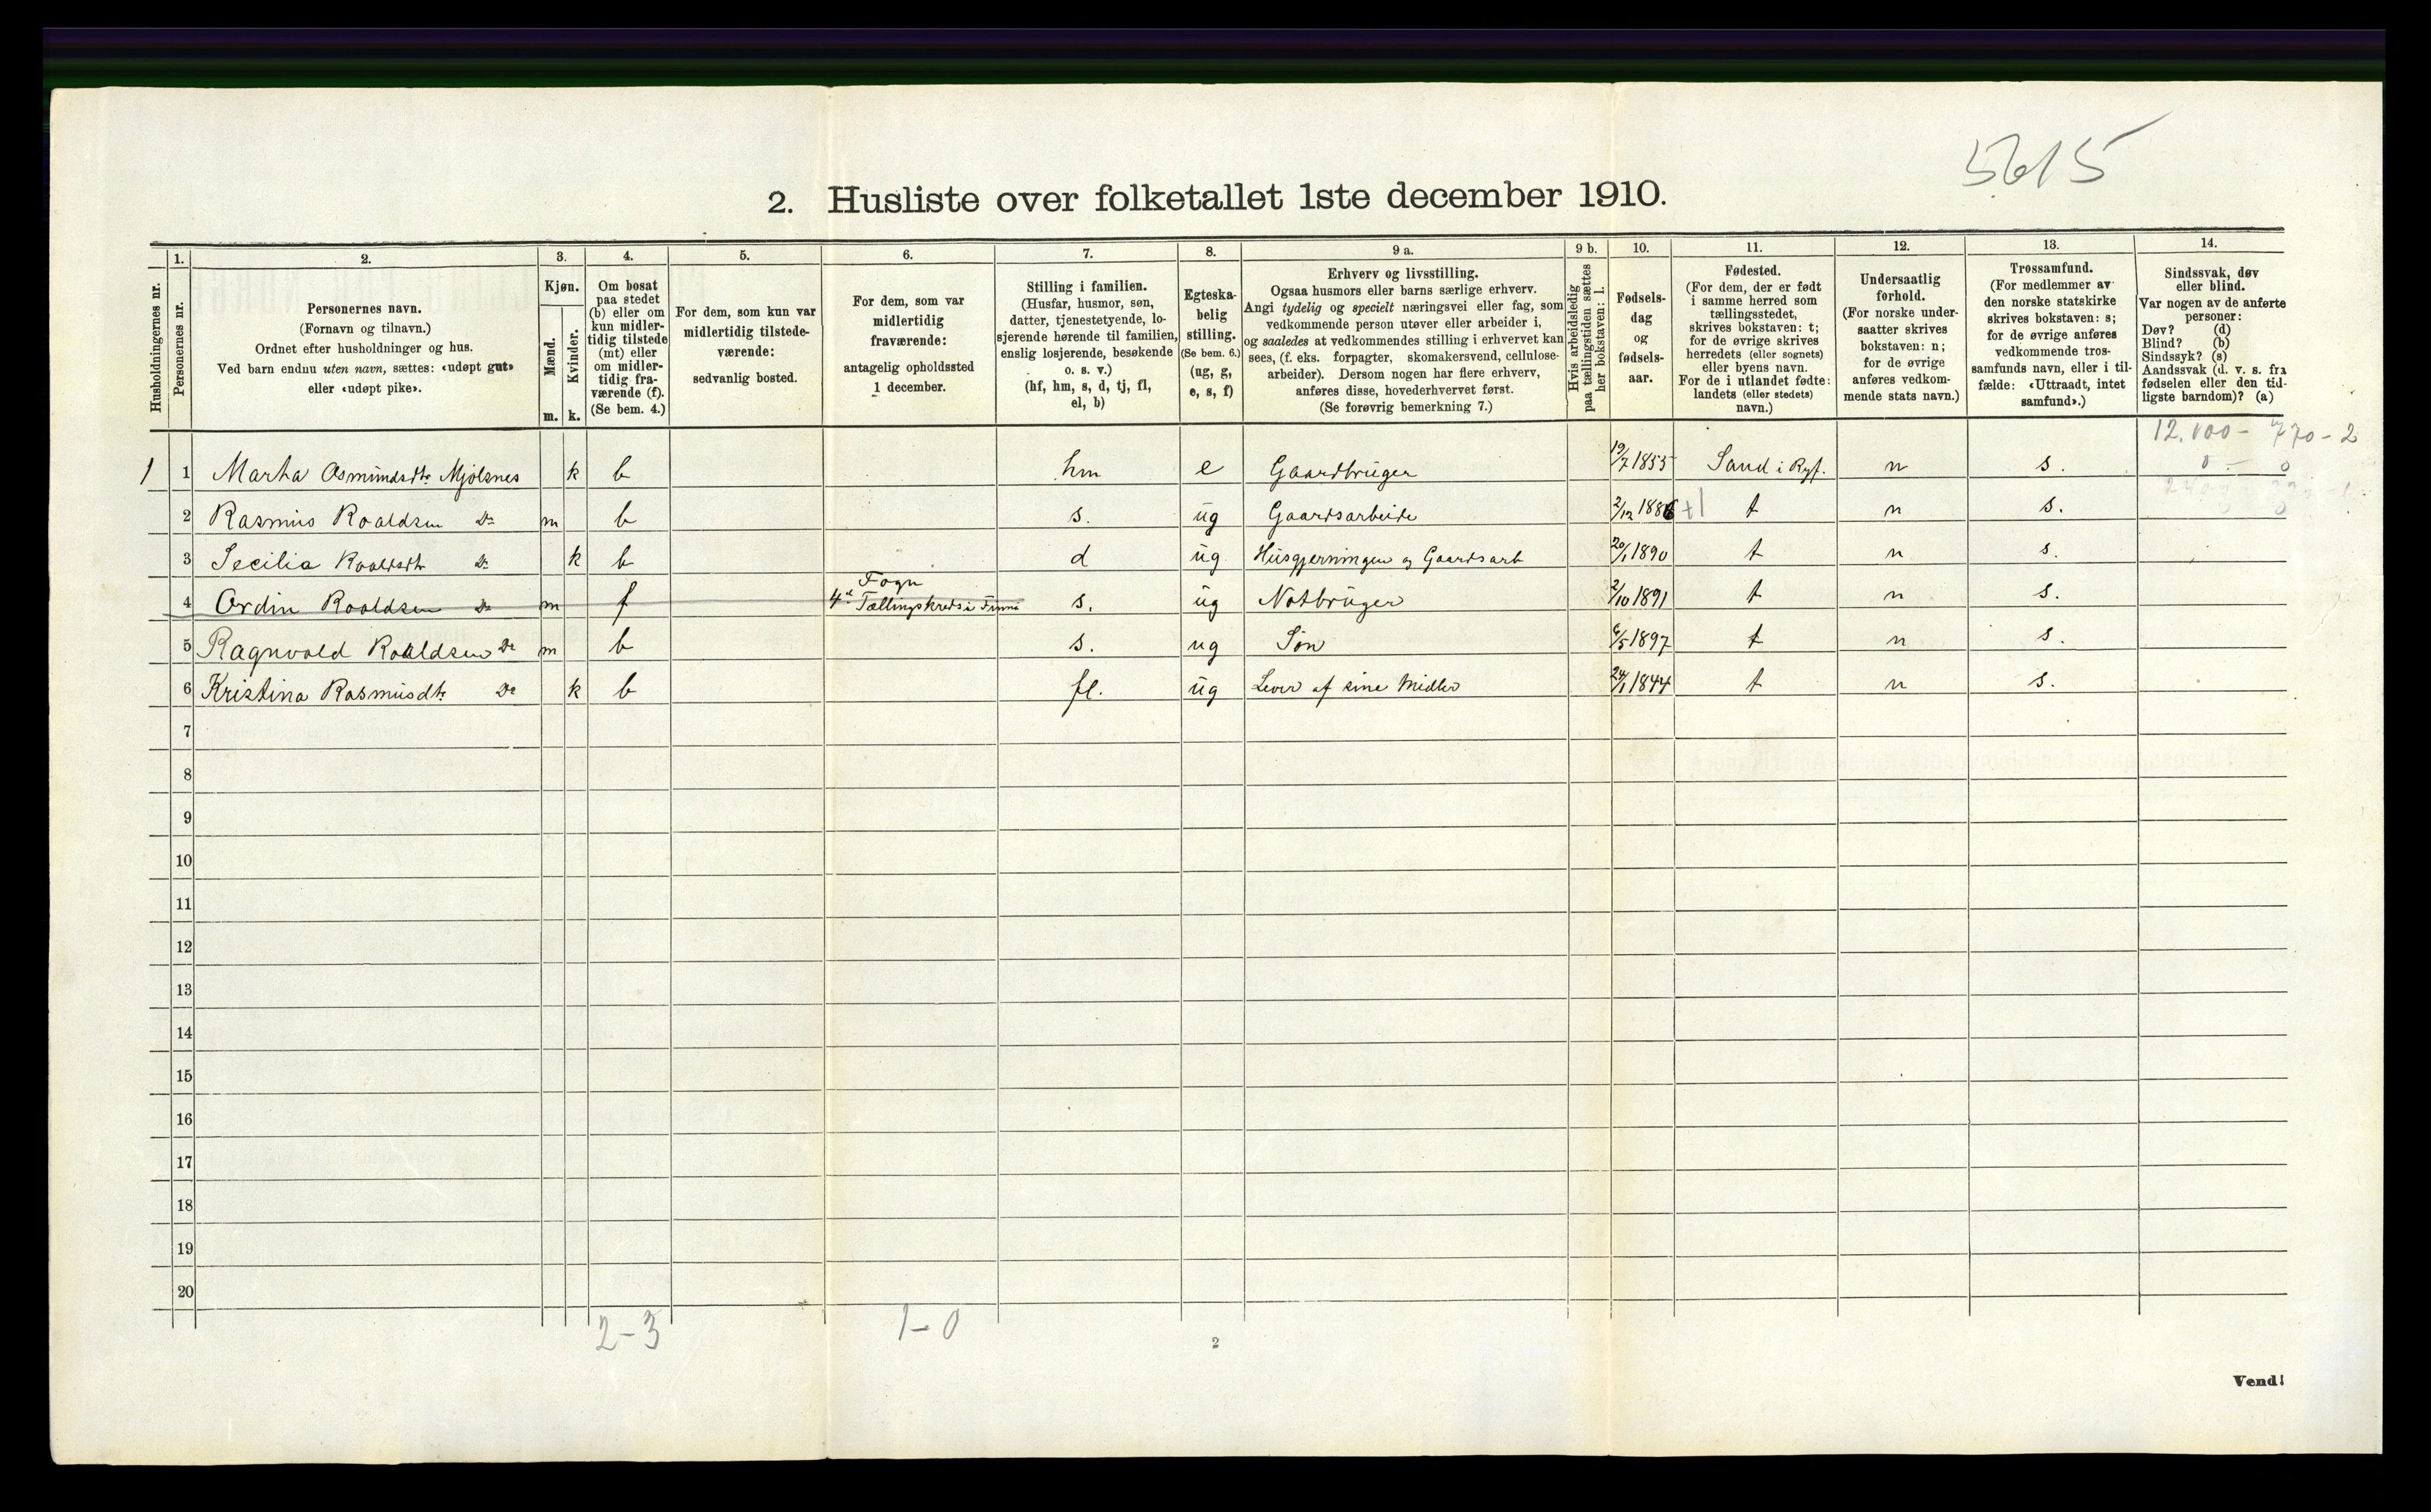 5615
2. Husliste over folketallet 1ste december 1910.
Husholdningernes nr.
1.
Personernes nr.
2.
Personernes navn.
(Fornavn og tilnavn.)
Ordnet efter husholdninger og hus.
Ved barn endnu uten navn, sættes: «udøpt gut»
eller «udøpt pike».
3.
Kjøn.
Mænd.
Kvinder.
m. k.
4.
Om bosat
paa stedet
(b) eller om
kun midler-
tidig tilstede
(mt) eller
om midler-
tidig fra-
værende (f).
(Se bem. 4.)
5.
For dem, som kun var
midlertidig tilstede-
værende:
sedvanlig bosted.
6.
For dem, som var
midlertidig
fraværende:
antagelig opholdssted
1 december.
7.
Stilling i familien.
(Husfar, husmor, søn,
datter, tjenestetyende, lo-
sjerende hørende til familien,
enslig losjerende, besøkende
o. s. v.)
(hf, hm, s, d, tj, fl,
el, b)
8.
Egteska-
belig
stilling.
(Se bem. 6.)
(ug, g,
e, s, f)
9 a.
Erhverv og livsstilling.
Ogsaa husmors eller barns særlige erhverv.
Angi tydelig og specielt næringsvei eller fag, som
vedkommende person utøver eller arbeider i,
og saaledes at vedkommendes stilling i erhvervet kan
sees, (f. eks. forpagter, skomakersvend, cellulose-
arbeider). Dersom nogen har flere erhverv,
anføres disse, hovederhvervet først.
(Se forøvrig bemerkning 7.)
9 b.
Hvis arbeidsledig
paa tællingstiden sættes
her bokstaven: l.
10.
Fødsels-
dag
og
fødsels-
aar.
11.
Fødested.
(For dem, der er født
i samme herred som
tællingsstedet,
skrives bokstaven: t;
for de øvrige skrives
herredets (eller sognets)
eller byens navn.
For de i utlandet fødte:
landets (eller stedets)
navn.)
12.
Undersaatlig
forhold.
(For norske under-
saatter skrives
bokstaven: n;
for de øvrige
anføres vedkom-
mende stats navn.)
13.
Trossamfund.
(For medlemmer av
den norske statskirke
skrives bokstaven: s;
for de øvrige anføres
vedkommende tros-
samfunds navn, eller i til-
fælde: «Uttraadt, intet
samfund».)
14.
Sindssvak, døv
eller blind.
Var nogen av de anførte
personer:
Døv? (d)
Blind? (b)
Sindssyk? (s)
Aandssvak (d. v. s. fra
fødselen eller den tid-
ligste barndom)? (a)
12.100 - 770 - 2
1 1 Marha Osmundsdtr Mjølsnes k b hm e Gaardbruger 19/7 1855 Sand i Ryf. n s.
2 Rasmus Roaldsen Do m b s. ug Gaardsarbeide 2/12 1886 +1 t n s.
3 Secilia Roaldsdtr Do k b d ug Husgjerningen og Gaardsarb 20/1 1890 t n s.
4 Ordin Roaldsen Do m f Fogn 4de Tællingskreds i Finnø s. ug Notbruger 2/10 1891 t n s.
5 Ragnvald Roaldsen Do m b s. ug Søn 6/5 1897 t n s.
6 Kristina Rasmusdtr. Do k b fl. ug Lever af sine Midler 24/1 1844 t n s.
7
8
9
10
11
12
13
14
15
16
17
18
19
20
2-3
1-0
2
Vend!